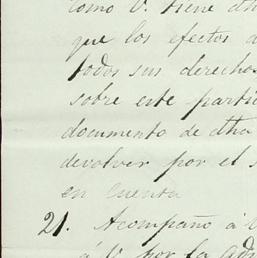 como V. tiene dha
que los efectos d
todos sus derechos
sobre este parti
documento de dha
devolver por el s
en cuenta
21. Acompaño á V
á V. por la adu